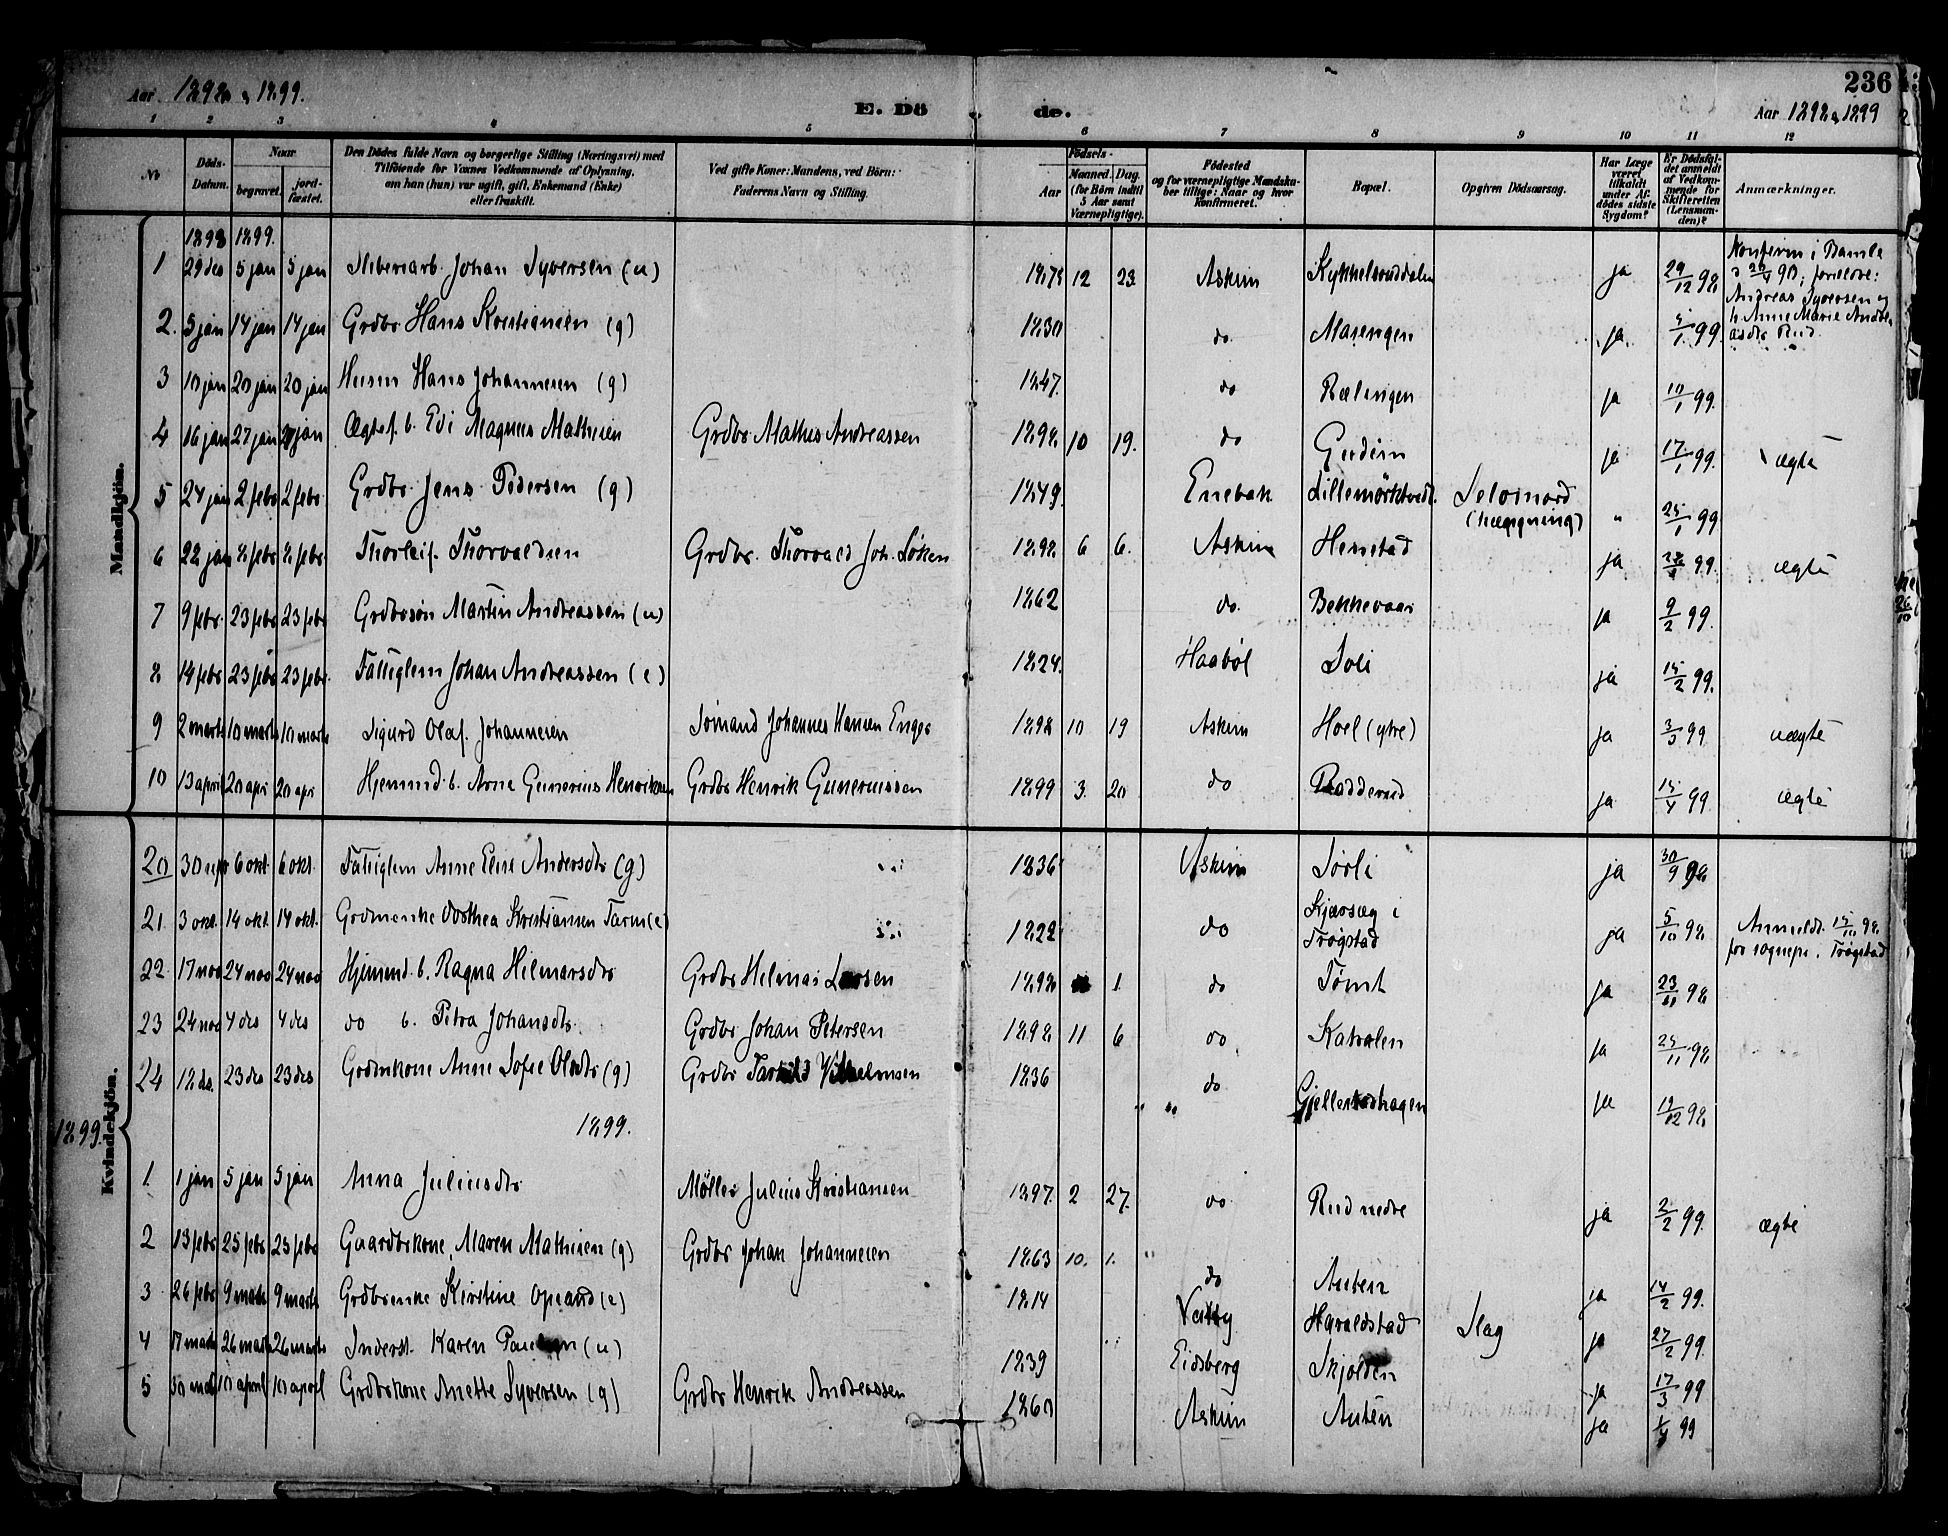 236
Aar 1898 & 1899.
E. Döde.
Aar 1898 & 1899
1 2 3 4 5 6 7 8 9 10 11 12
No
Döds-Datum.
Naar begravet. jordfæstet.
Den Dödes fulde Navn og borgerlige Stilling (Næringsvei) med Tilföiende for Voxnes Vedkommende af Oplysning, om han (hun) var ugift, gift, Enkemand (Enke) eller fraskilt.
Ved gifte Koner: Mandens, ved Börn: Faderens Navn og Stilling.
Födsels-
Aar
Maaned. Dag. (for Börn indtil 5 Aar samt Værnepligtige).
Födested og for værnepligtige Mandskaber tillige: Naar og hvor Konfirmeret.
Bopæl.
Opgiven Dödsaarsag.
Har Læge været tilkaldt under Afdödes sidste Sygdom?
Er Dödsfaldet anmeldt af Vedkommende for Skifteretten (Lensmanden)?
Anmærkninger.
Mandkjön.
1898 1899.
1 29 des 5 jan 5 jan Sliberiarb. Johan Syversen (u) 1878 12 23 Askim Kykkelsruddalen ja 29/12 98
Konfirm i Bamle
Andreas Syversen og
h. Anne Marie Andre
asdtr Rud.
2. 5 jan 14 jan 14 jan Grdbr Hans Kristiansen (g) 1830 do Marengen ja 5/1 99.
3 10 jan 20 jan 20 jan Husm Hans Johannesen (g) 1847. do Rælingen ja 10/1 99.
4 16 jan 27 jan 27 jan Ægtef. b. Edi Magnus Mathisen Grdbr Mathis Andreassen 1898 10 19. do ja 17/1 99. ægte
5 24 jan 2 febr 2 febr Grdbr Jens Pedersen (g) 1849. Enebak Selvmord (hægngning) " 25/1 99
6 22 jan 8 febr 8 febr Thorleif Thorvaldsen Grdbr. Thorvald Joh. Løken 1898 6 6. Askim Henstad ja 99. ægte
7 9 febr. 23 febr 23 febr Grdbrsøn Martin Andreassen (u) 1862 do. Bekkevaar ja 9/2 99.
8 14 febr 23 febr 23 febr. Fattiglem Johan Andreassen (e) 1824. Haabøl Soli ja 15/2 99.
9 2 marts 10 marts 10 marts Sigurd Olaf Johannesen Sømand Johannes Hansen Enger 1898 10 19 Askim Hoel (ytre) ja 3/3 99 uægte
10 13 april 20 apr 20 apr Hjemmd. b. Arne Gunerius Henriksen Grdbr Henrik Guneriussen 1899 3. 20 do Rodderud ja 15/4 99. ægte
Kvindekjön.
20 30 sept 6 okt 6 okt. Fattiglem Anne Eline Andersdtr (g) 1836 Askim Sørli ja 30/9 98
21. 3 okt. 14 okt. 14 okt. Grdmenke Dorthea Kristiansen Farm (e) 1822 do Skjærsæg i Trøgstad ja 5/10 98 Anmeldt 15/10 98 for sognepr. i Trøgstad
22. 17 nov 24 nov 24 nov Hjemmd. b. Ragna Hilmarsdtr Grdbr Helmar Larsen 1898 1. do Tømt ja 23/11 98
23 24 nov 4 des 4 des do b. Petra Johansdtr. Grdbr Johan Petersen 1898 11 6 do Katralen ja 25/11 98
24 18 des. 23 des 23 des Grdmkone Anne Sofie Olsdtr (g) Grdbr Vilhelmsen 1836 do ja 19/12 98
1899. 1899.
1 1 jan 5 jan 5 jan Anna Juliusdtr Møller Julius Kristiansen 1897 2 27. do Rud nedre ja 2/2 99. ægte
2 13 febr 25 febr 25 febr Gaardbrkone Maren Mathisen (g) Grdbr Johan Johannesen 1863 10. 1. do Auten ja 14/2 99.
3 26 febr 9 marts 9 marts Grdbrenke Kirstine Opsand (e) 1814 Haraldstad Slag ja 27/2 99.
4 17 marts 26 marts 26 marts Inderst. Karen (u) 1839 Eidsberg Skjolden ja 17/3 99
5 30 marts 10 april 10 april Grdbrkone Anette Syversen (g) Grdbr Henrik Andreassen 1860 Askim Auten ja 99